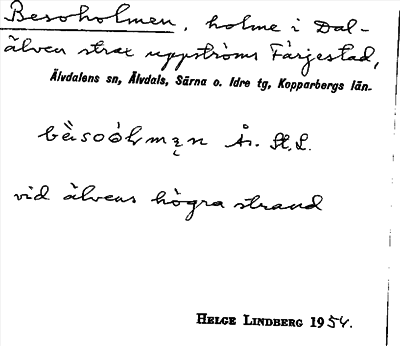 Besoholmen, holme i Dal-
älven strax uppströms Färjestad,
Älvdalens sn, Älvdals, Särna o. Idre tg, Kopparbergs län.
vid älvens högra strand
HELGE LINDBERG 1954.